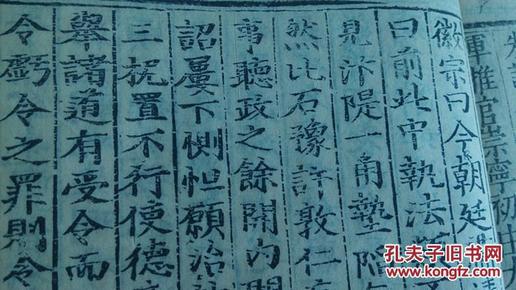 軍推官崇寧初
徽宗曰今朝廷
曰前此中執法
見汴隄一角墊
然比石豫許敦仁
事聽政之餘開內
詔屢下惻怛願治
三扰置不行使德
舉諸道有受令而
令虧令之罪則令
孔夫子旧书网
www.kongfz.com